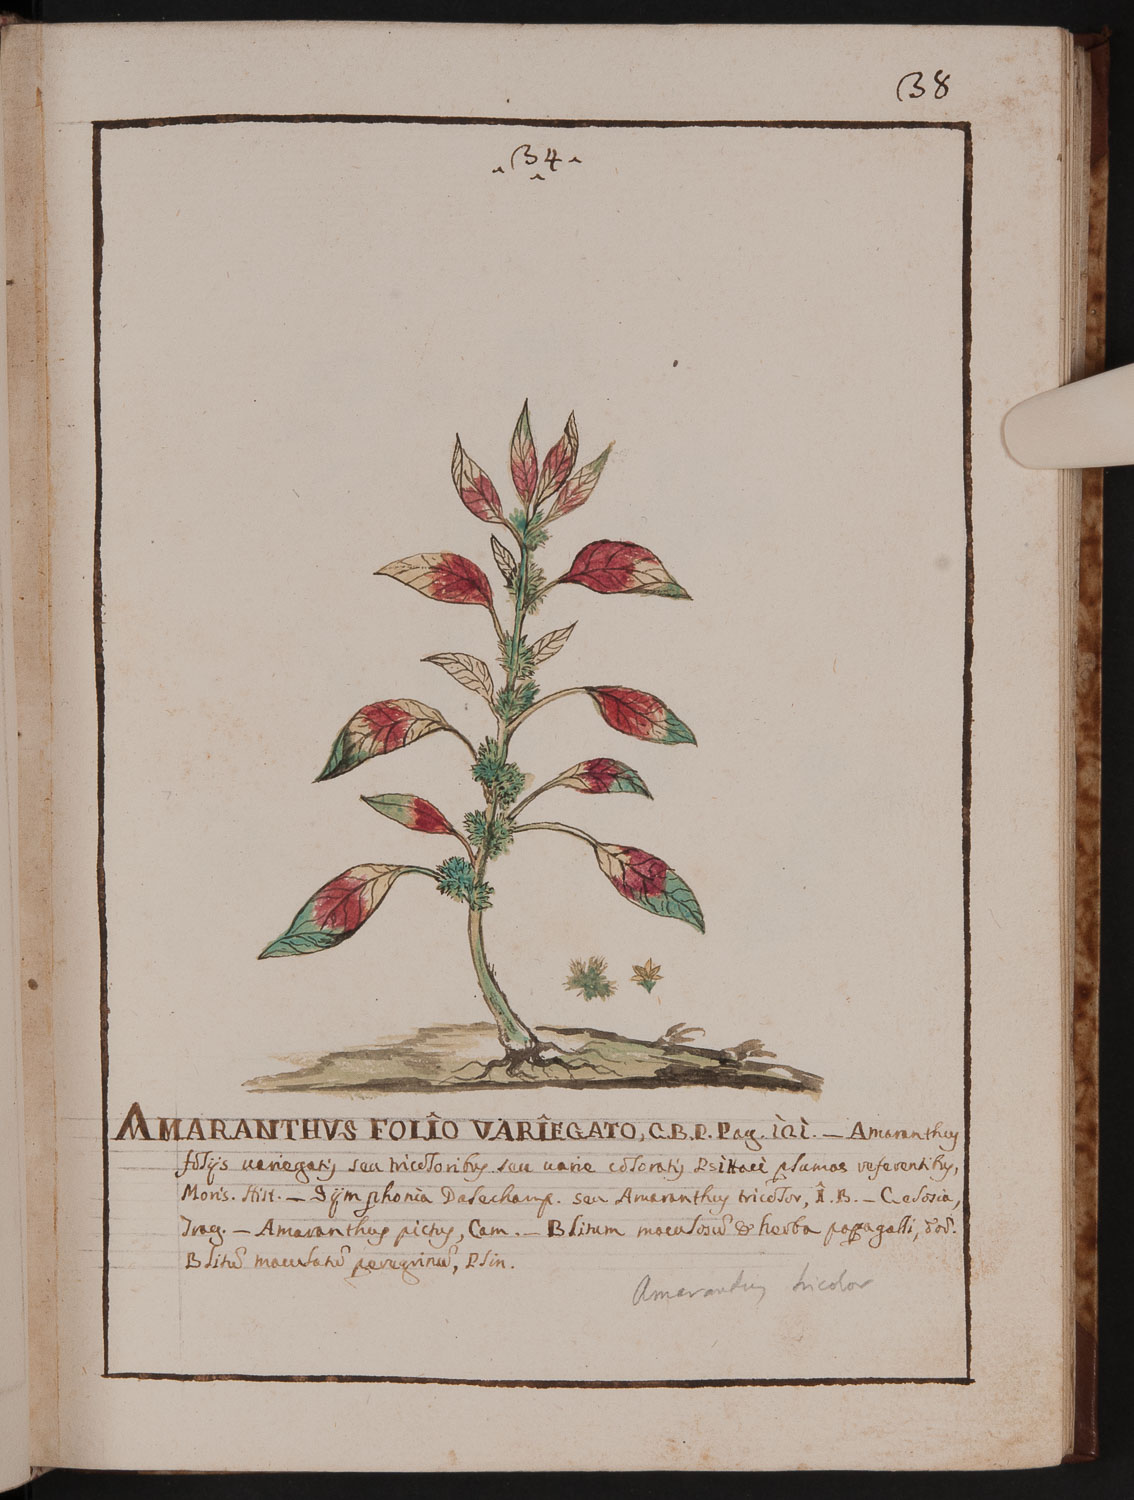 38
34
AMARANTHVS FOLIO VARIEGATO, C.B.P. Pag. 121. — Amaranthus
folijs variegatis seu tricoloribus seu varie coloratis Psittaci plumas referentibus,
Moris. Hist. — Sijmphonia Dalechamp. seu Amaranthus tricolor, I.B. — Celosia,
Trag. — Amaranthus pictus, Cam. — Blitum maculosũ & herba papagalli, dod.
Blitũ maculatũ peregrinũ, Plin.
Amarantus tricolor